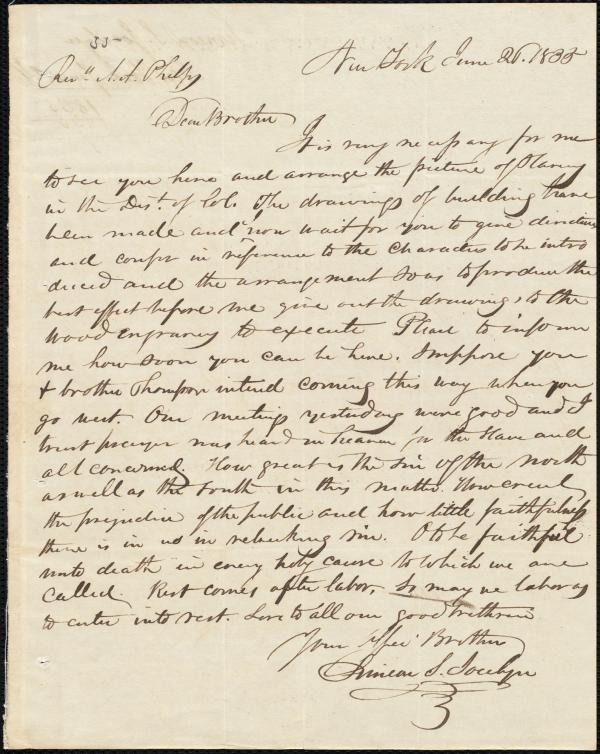 33
New York June 26. 1835
Revd. A. A. Phelps
Dear Brother
It is very necessary for me
to see you here and arrange the picture of Slavery
in the Dist. of Col. The drawings of building have
been made and now wait for you to give directions
and confer in reference to the Characters to be intro
duced and the arrangement so as to produce the
best effect before we give out the drawings to the
wood engravers to execute Please to inform
me how soon you can be here. I suppose you
& brother Thompson intend coming this way when you
go west. Our meetings yesterday were good and I
trust prayer was heard in heaven for the slave and
all concerned. How great is the sin of the north
as well as the South in this matter. How cruel
the prejudice of the public and how little faithfulness
there is in us in rebuking sin. O to be faithful
unto death in every holy cause to which we are
called. Rest comes after labor, So may we labor as
to enter into rest. Love to all our good brethren
Your Affec. Brother
Simeon S. Jocelyn